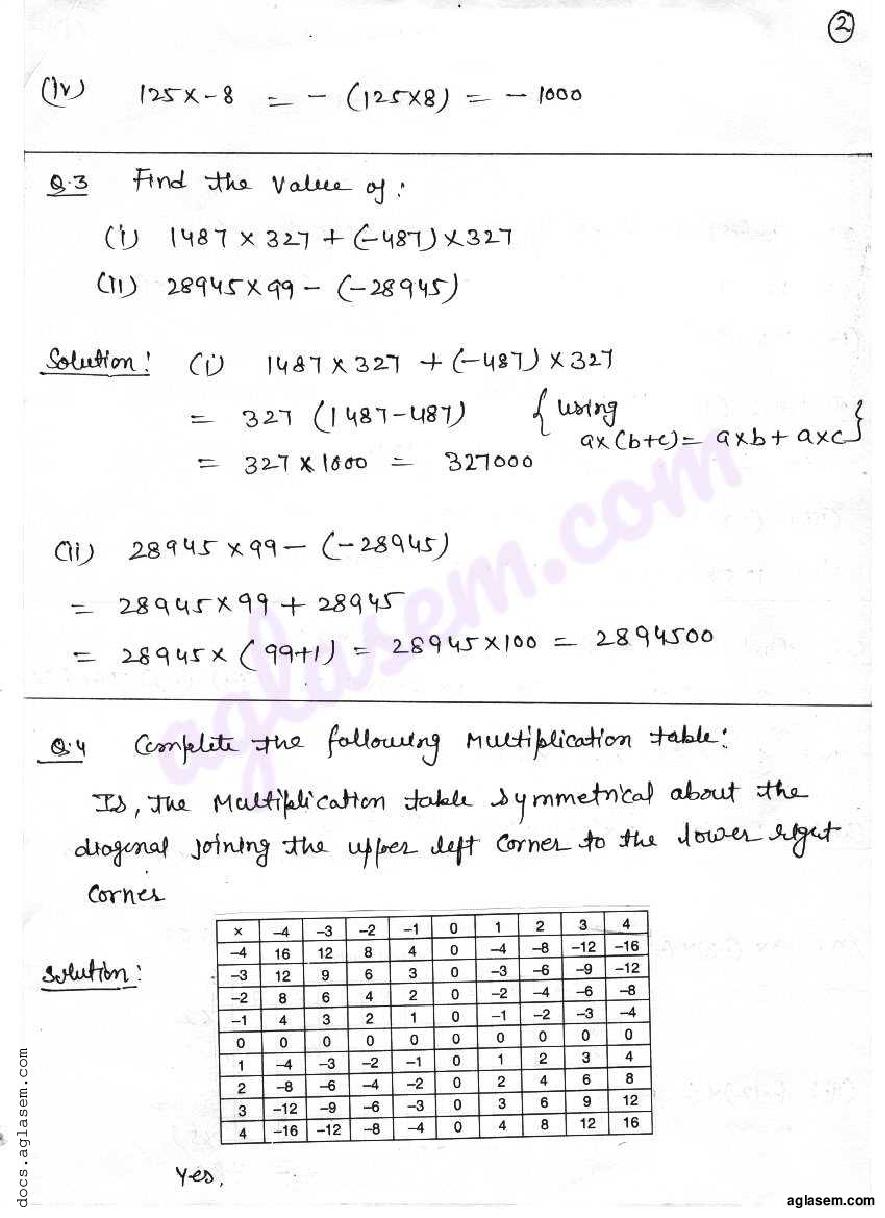 2
(iv) 125×-8 = - (125×8) = - 1000
Q.3 Find the Value of:
(i) 1487 × 327 + (-487) × 327
(ii) 28945×99 - (-28945)
Solution: (i) 1487 × 327 + (-487) × 327
= 327 (1487-487) { using
a×(b+c) = a×b + a×c }
= 327 × 1000 = 327000
(ii) 28945 × 99 - (-28945)
= 28945×99 + 28945
= 28945× (99+1) = 28945×100 = 2894500
Q.4 Complete the following Multiplication table:
Is, the Multiplication table symmetrical about the
diagonal joining the upper left corner to the lower right
corner
Solution:
× -4 -3 -2 -1 0 1 2 3 4
-4 16 12 8 4 0 -4 -8 -12 -16
-3 12 9 6 3 0 -3 -6 -9 -12
-2 8 6 4 2 0 -2 -4 -6 -8
-1 4 3 2 1 0 -1 -2 -3 -4
0 0 0 0 0 0 0 0 0 0
1 -4 -3 -2 -1 0 1 2 3 4
2 -8 -6 -4 -2 0 2 4 6 8
3 -12 -9 -6 -3 0 3 6 9 12
4 -16 -12 -8 -4 0 4 8 12 16
Yes.
aglasem.com
docs.aglasem.com
aglasem.com